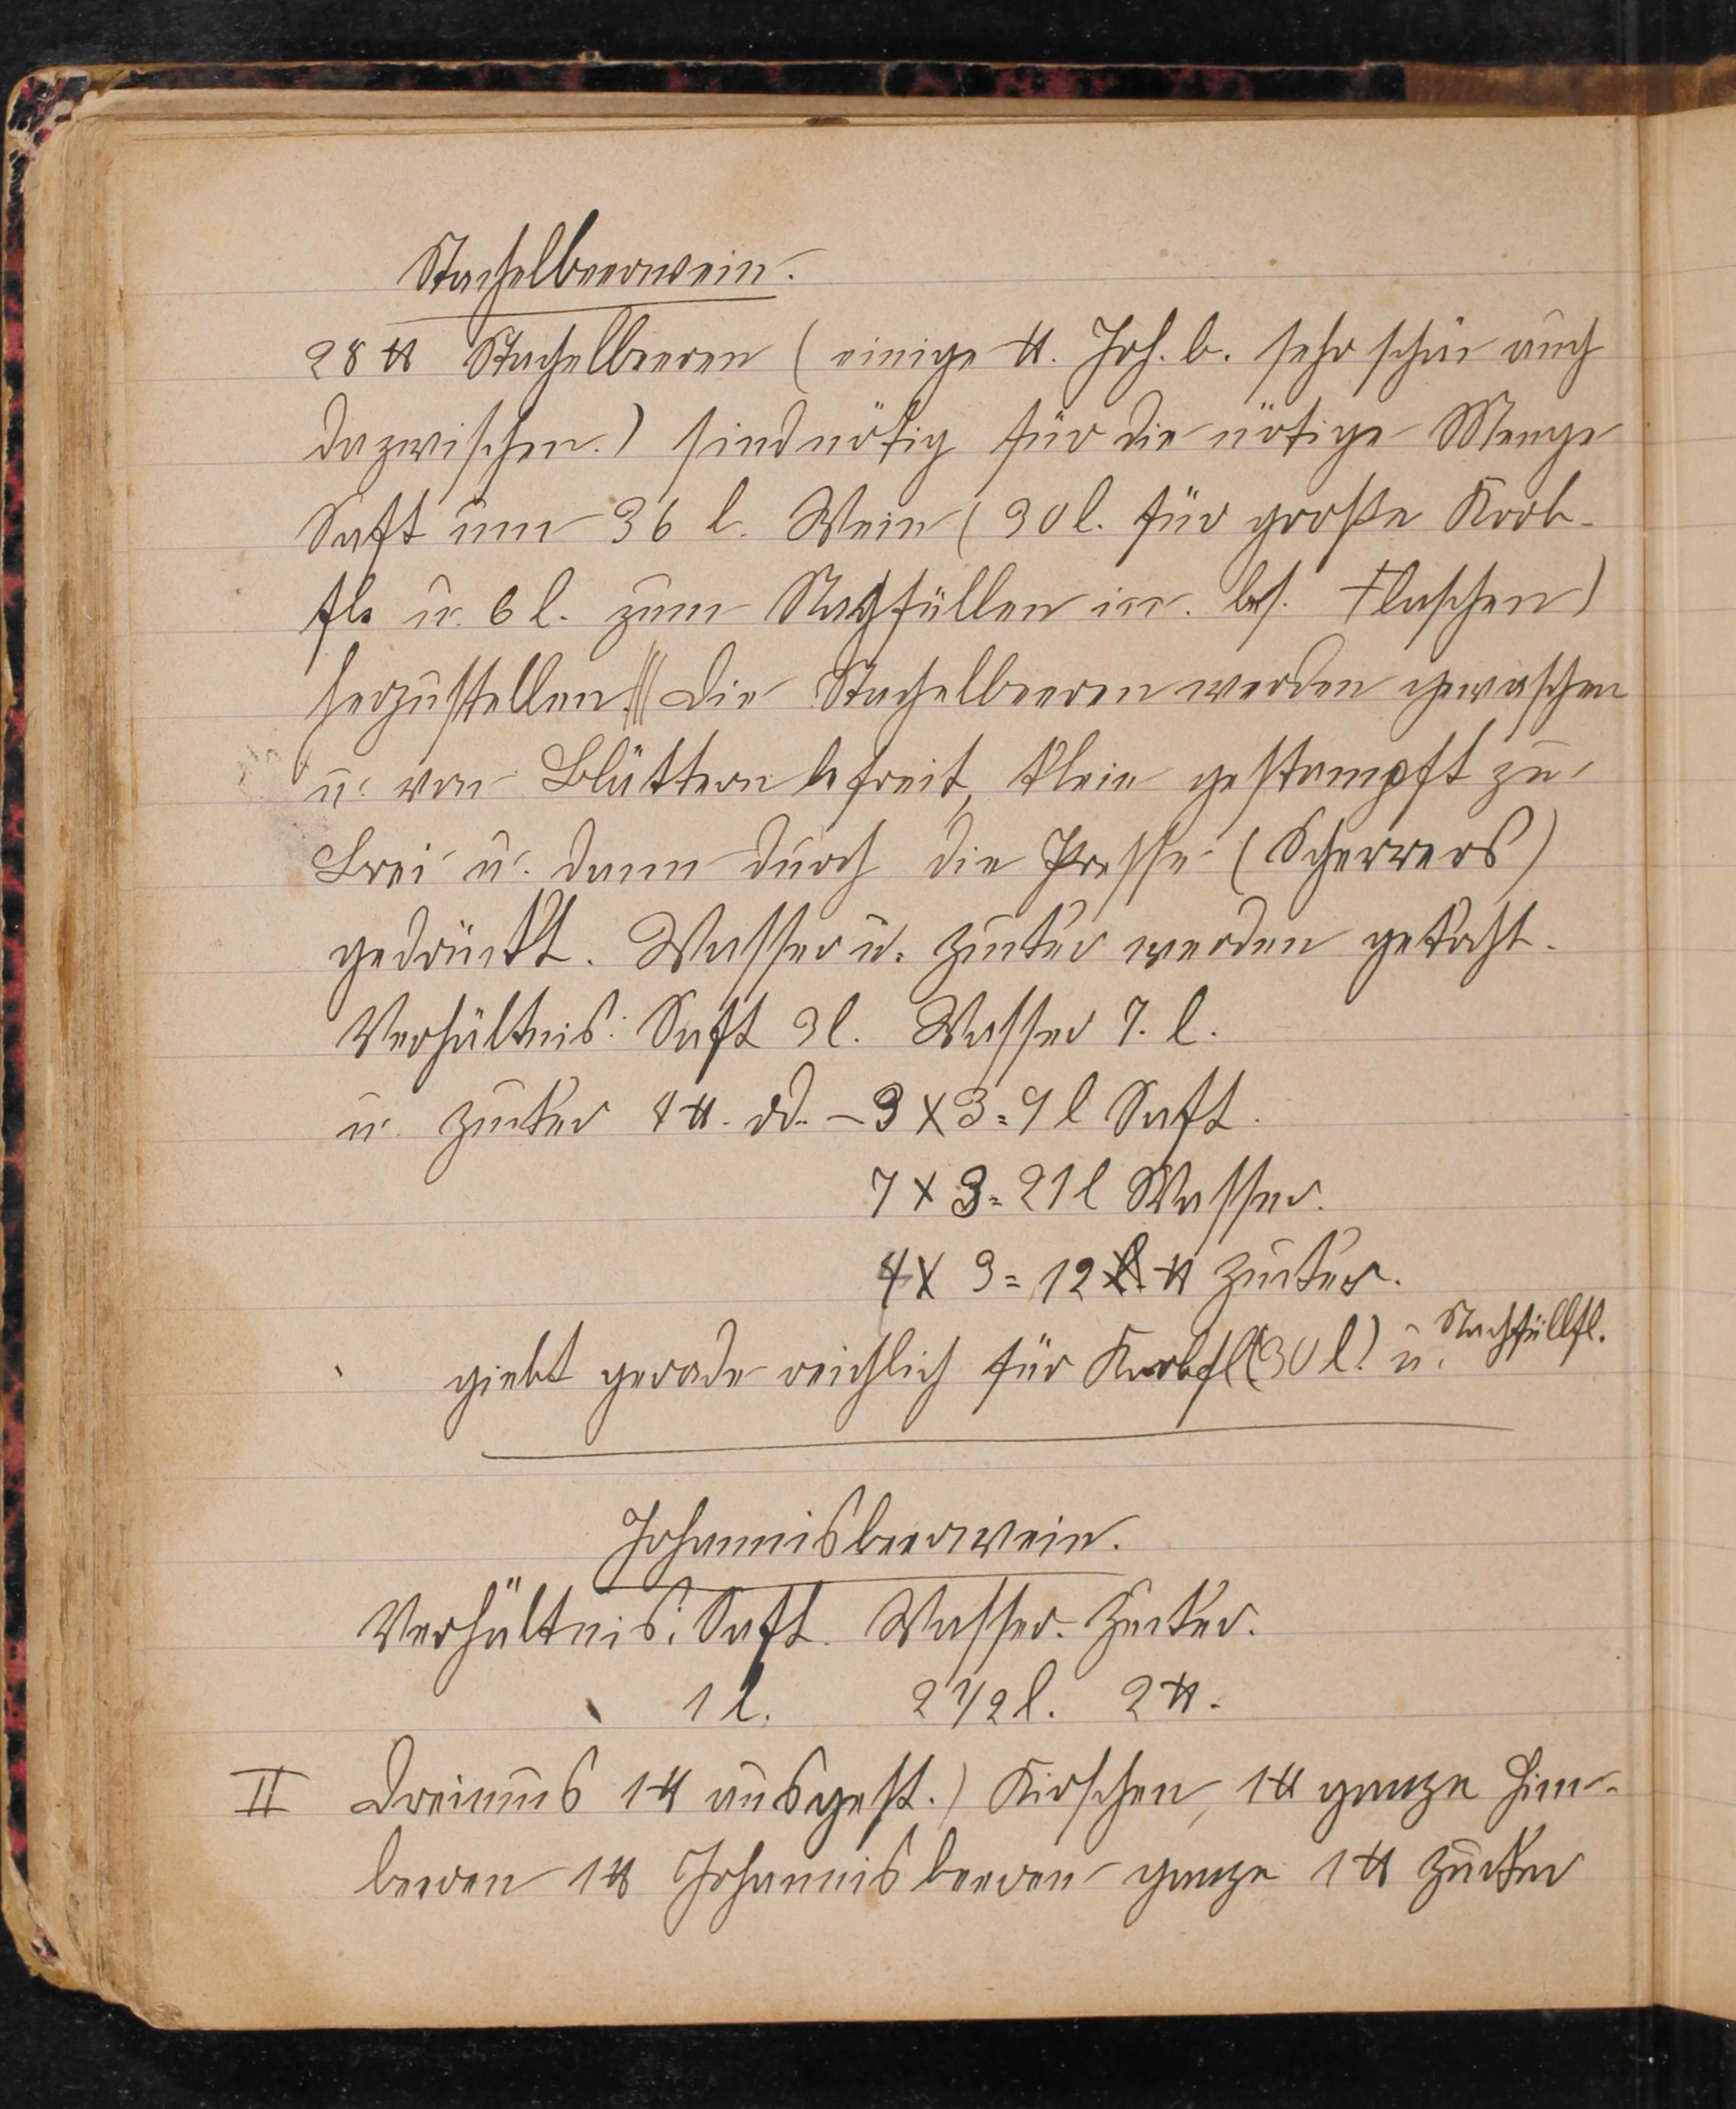 Stachelbeerwein.
28 ℔ Stachelbeeren (einige ℔. Joh. b. sehr schön auch
dazwischen.) sind nötig für die nötige Menge
Saft um 36 l. Wein (30 l. für große Korb-
fl. u. 6 l. zum Nachfüllen in bes. Flaschen)
herzustellen. Die Stachelbeeren werden gewaschen
u. von Blättern befreit, klein gestampft zu
Brei u. dann durch die Presse (Scherrers)
gedrückt. Wasser u. Zucker werden gekocht.
Verhältnis: Saft 3 l. Wasser 7. l.
u. Zucker 4 ℔. od. – 3 x 3 = 9 l Saft.
7 x 3 = 21 l Wasser.
4 x 3 = 12 ℔ Zucker.
giebt gerade reichlich für Korbfl (30 l.) u. Nachfüllfl.
Johannisbeerwein.
Verhältnis: Saft. Wasser. Zucker.
1 l. 2 1/2 l. 2 ℔.
II Dreimus 1 ℔ ausgest.) Kirschen, 1 ℔ ganze Him-
beeren 1 ℔ Johannisbeeren ganze 1 ℔ Zucker